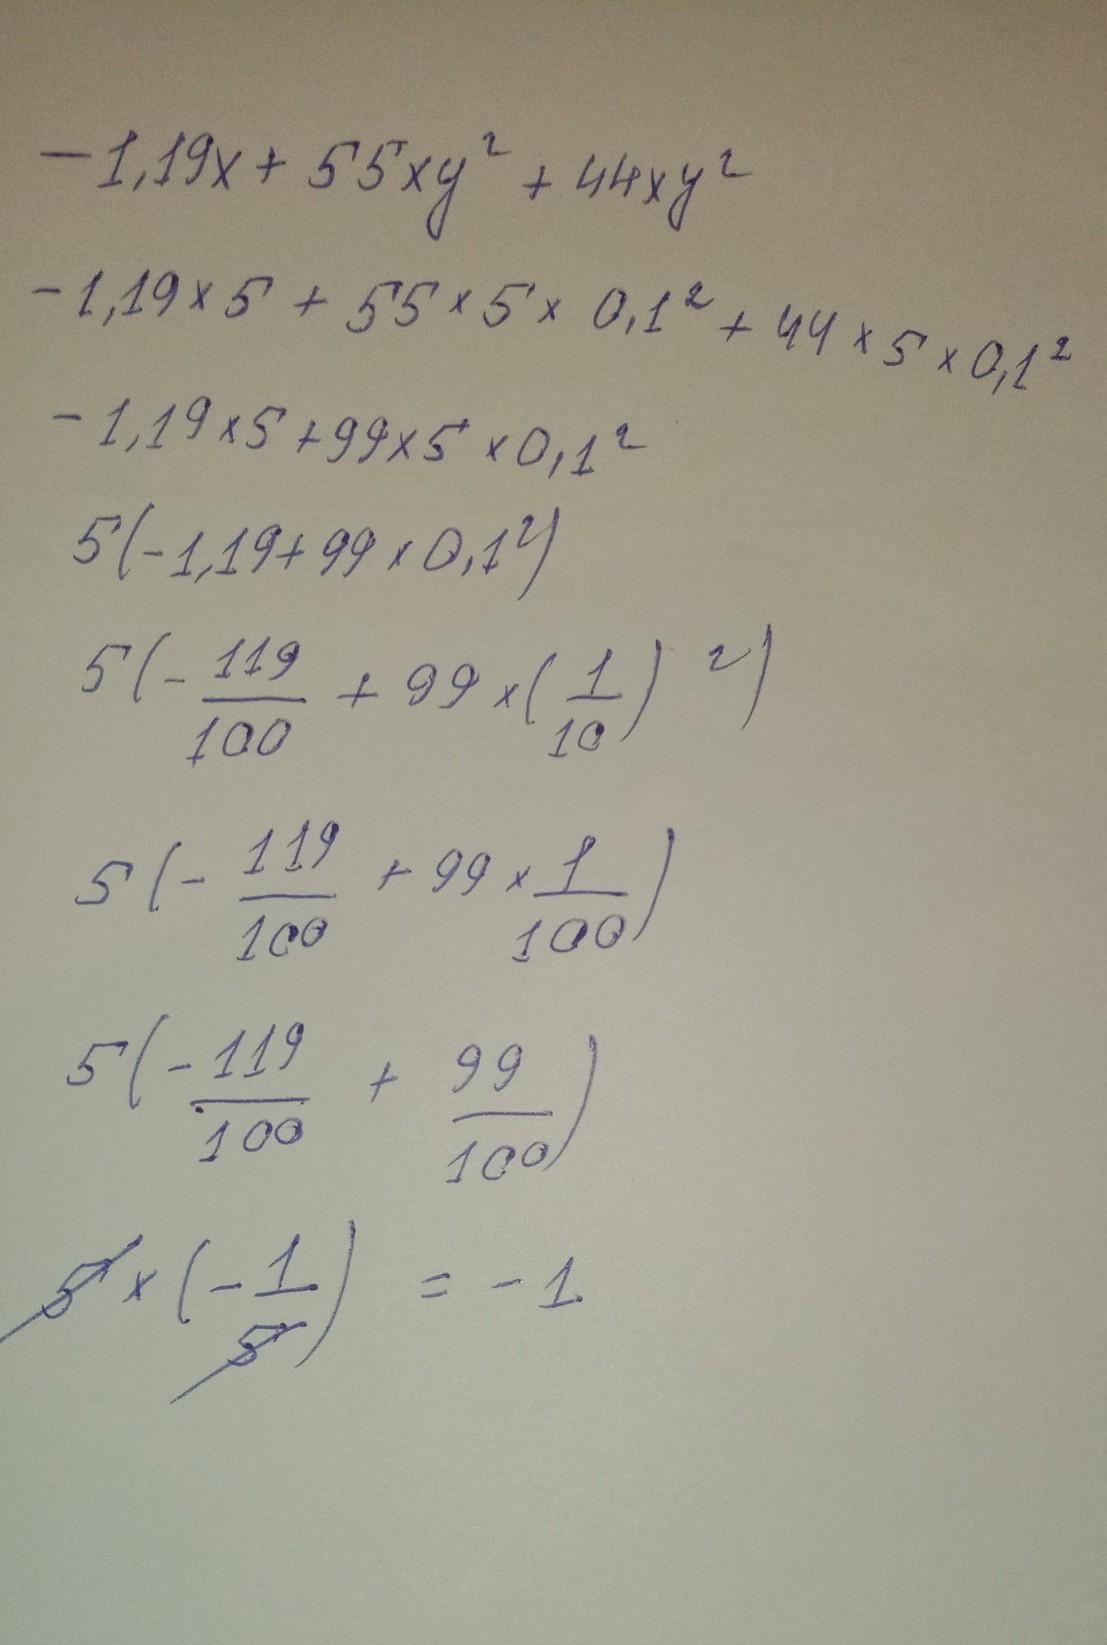 -1,19x + 55xy² + 44xy²
-1,19×5 + 55×5×0,1² + 44×5×0,1²
-1,19×5+99×5×0,1²
5(-1,19+99×0,1²)
5(-119/100 + 99×(1/10)²)
5(-119/100 + 99×1/100)
5(-119/100 + 99/100)
5×(-1/5) = -1